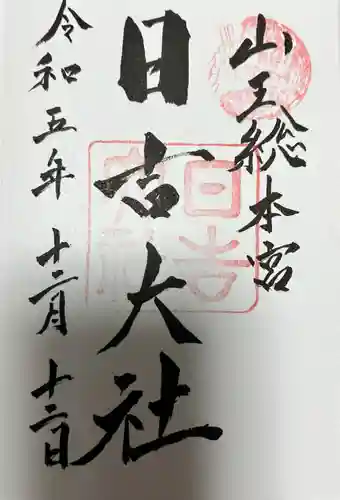 山王総本宮
日吉大社
日吉大社
令和五年十二月十二日